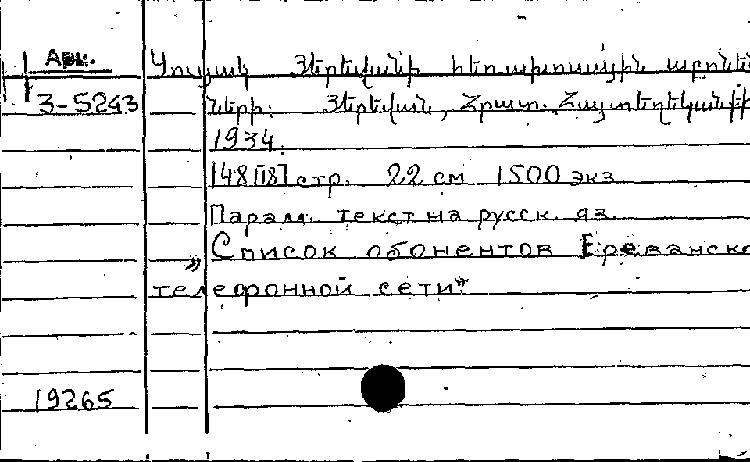 Арм. Ցուցակ Յերևանի հեռախոսային աբոնեն
3-5243 ների. Յերևան, Հրատ. Հայտեղեկանքի
1934.
148[18] стр. 22 см 1500 экз
Парал. текст на русск. яз.
„Список абонентов Ереванско
телефонной сети"
19265